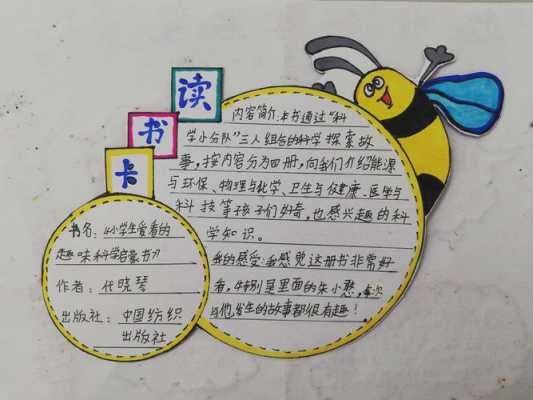 读
书
卡
书名：《小学生爱看的
趣味科学启蒙书》
作者：代晓琴
出版社：中国纺织
出版社
内容简介：本书通过“科
学小分队”三人组合的科学探索故
事，按内容分为四册，向我们介绍能源
与环保、物理与化学、卫生与健康、医学与
科技等孩子们好奇，也感兴趣的科
学知识。
我的感受：我感觉这册书非常好
看，特别是里面的朱小憨，每次
与他发生的故事都很有趣！